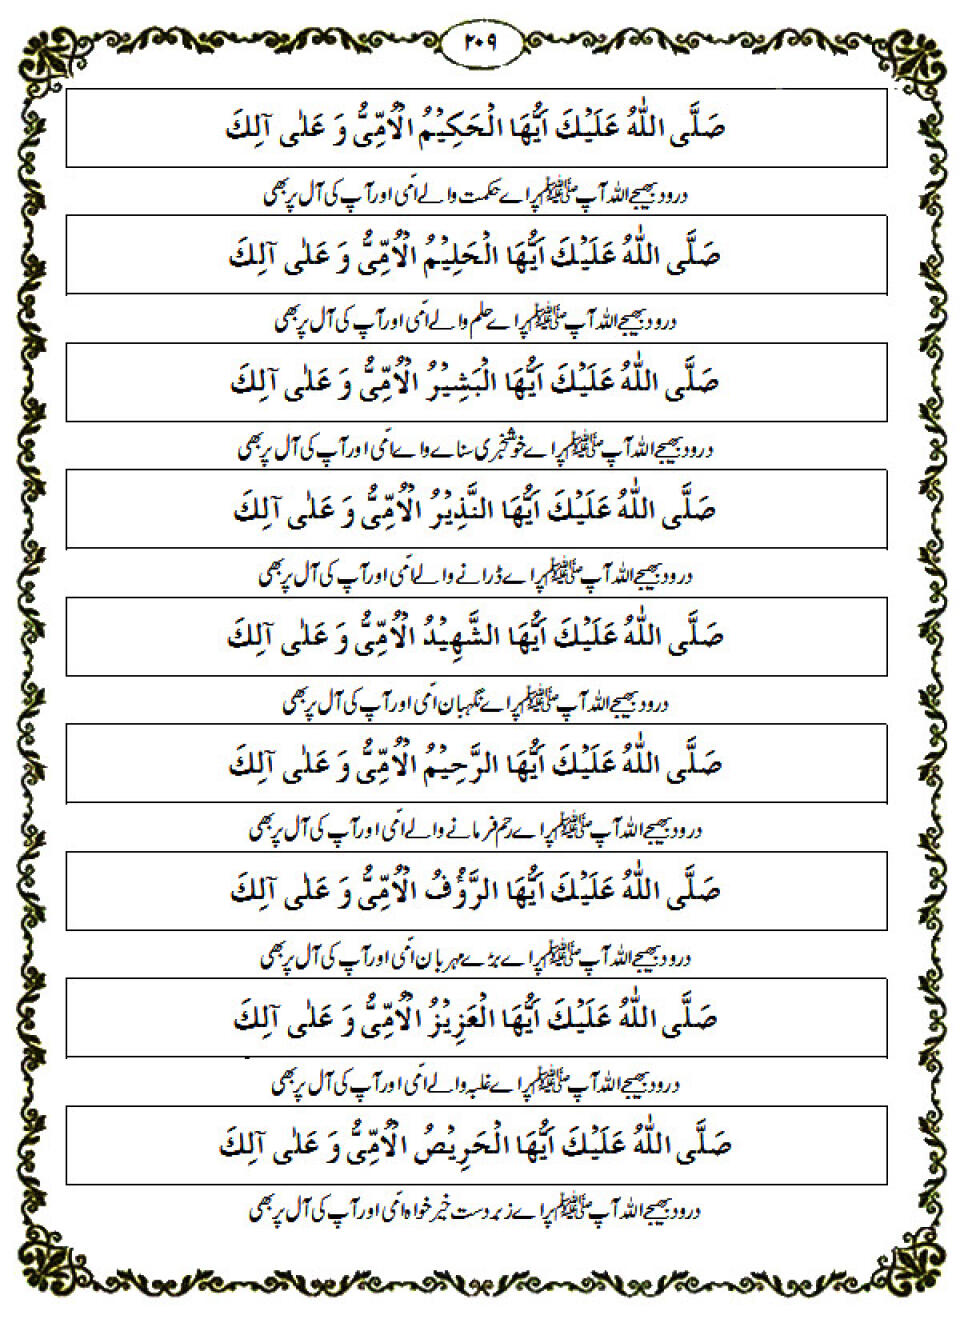 ۲۰۹
صَلَّى اللّٰهُ عَلَيْكَ اَيُّهَا الْحَكِيْمُ الْاُمِّىُّ وَ عَلٰى آلِكَ
درود بھیجے اللہ آپ ﷺ پر اے حکمت والے امّی اور آپ کی آل پر بھی
صَلَّى اللّٰهُ عَلَيْكَ اَيُّهَا الْحَلِيْمُ الْاُمِّىُّ وَ عَلٰى آلِكَ
درود بھیجے اللہ آپ ﷺ پر اے حلم والے امّی اور آپ کی آل پر بھی
صَلَّى اللّٰهُ عَلَيْكَ اَيُّهَا الْبَشِيْرُ الْاُمِّىُّ وَ عَلٰى آلِكَ
درود بھیجے اللہ آپ ﷺ پر اے خوشخبری سنانے والے امّی اور آپ کی آل پر بھی
صَلَّى اللّٰهُ عَلَيْكَ اَيُّهَا النَّذِيْرُ الْاُمِّىُّ وَ عَلٰى آلِكَ
درود بھیجے اللہ آپ ﷺ پر اے ڈرانے والے امّی اور آپ کی آل پر بھی
صَلَّى اللّٰهُ عَلَيْكَ اَيُّهَا الشَّهِيْدُ الْاُمِّىُّ وَ عَلٰى آلِكَ
درود بھیجے اللہ آپ ﷺ پر اے نگہبان امّی اور آپ کی آل پر بھی
صَلَّى اللّٰهُ عَلَيْكَ اَيُّهَا الرَّحِيْمُ الْاُمِّىُّ وَ عَلٰى آلِكَ
درود بھیجے اللہ آپ ﷺ پر اے رحم فرمانے والے امّی اور آپ کی آل پر بھی
صَلَّى اللّٰهُ عَلَيْكَ اَيُّهَا الرَّؤُفُ الْاُمِّىُّ وَ عَلٰى آلِكَ
درود بھیجے اللہ آپ ﷺ پر اے بڑے مہربان امّی اور آپ کی آل پر بھی
صَلَّى اللّٰهُ عَلَيْكَ اَيُّهَا الْعَزِيْزُ الْاُمِّىُّ وَ عَلٰى آلِكَ
درود بھیجے اللہ آپ ﷺ پر اے غلبہ والے امّی اور آپ کی آل پر بھی
صَلَّى اللّٰهُ عَلَيْكَ اَيُّهَا الْحَرِيْصُ الْاُمِّىُّ وَ عَلٰى آلِكَ
درود بھیجے اللہ آپ ﷺ پر اے زبردست خیر خواہ امّی اور آپ کی آل پر بھی